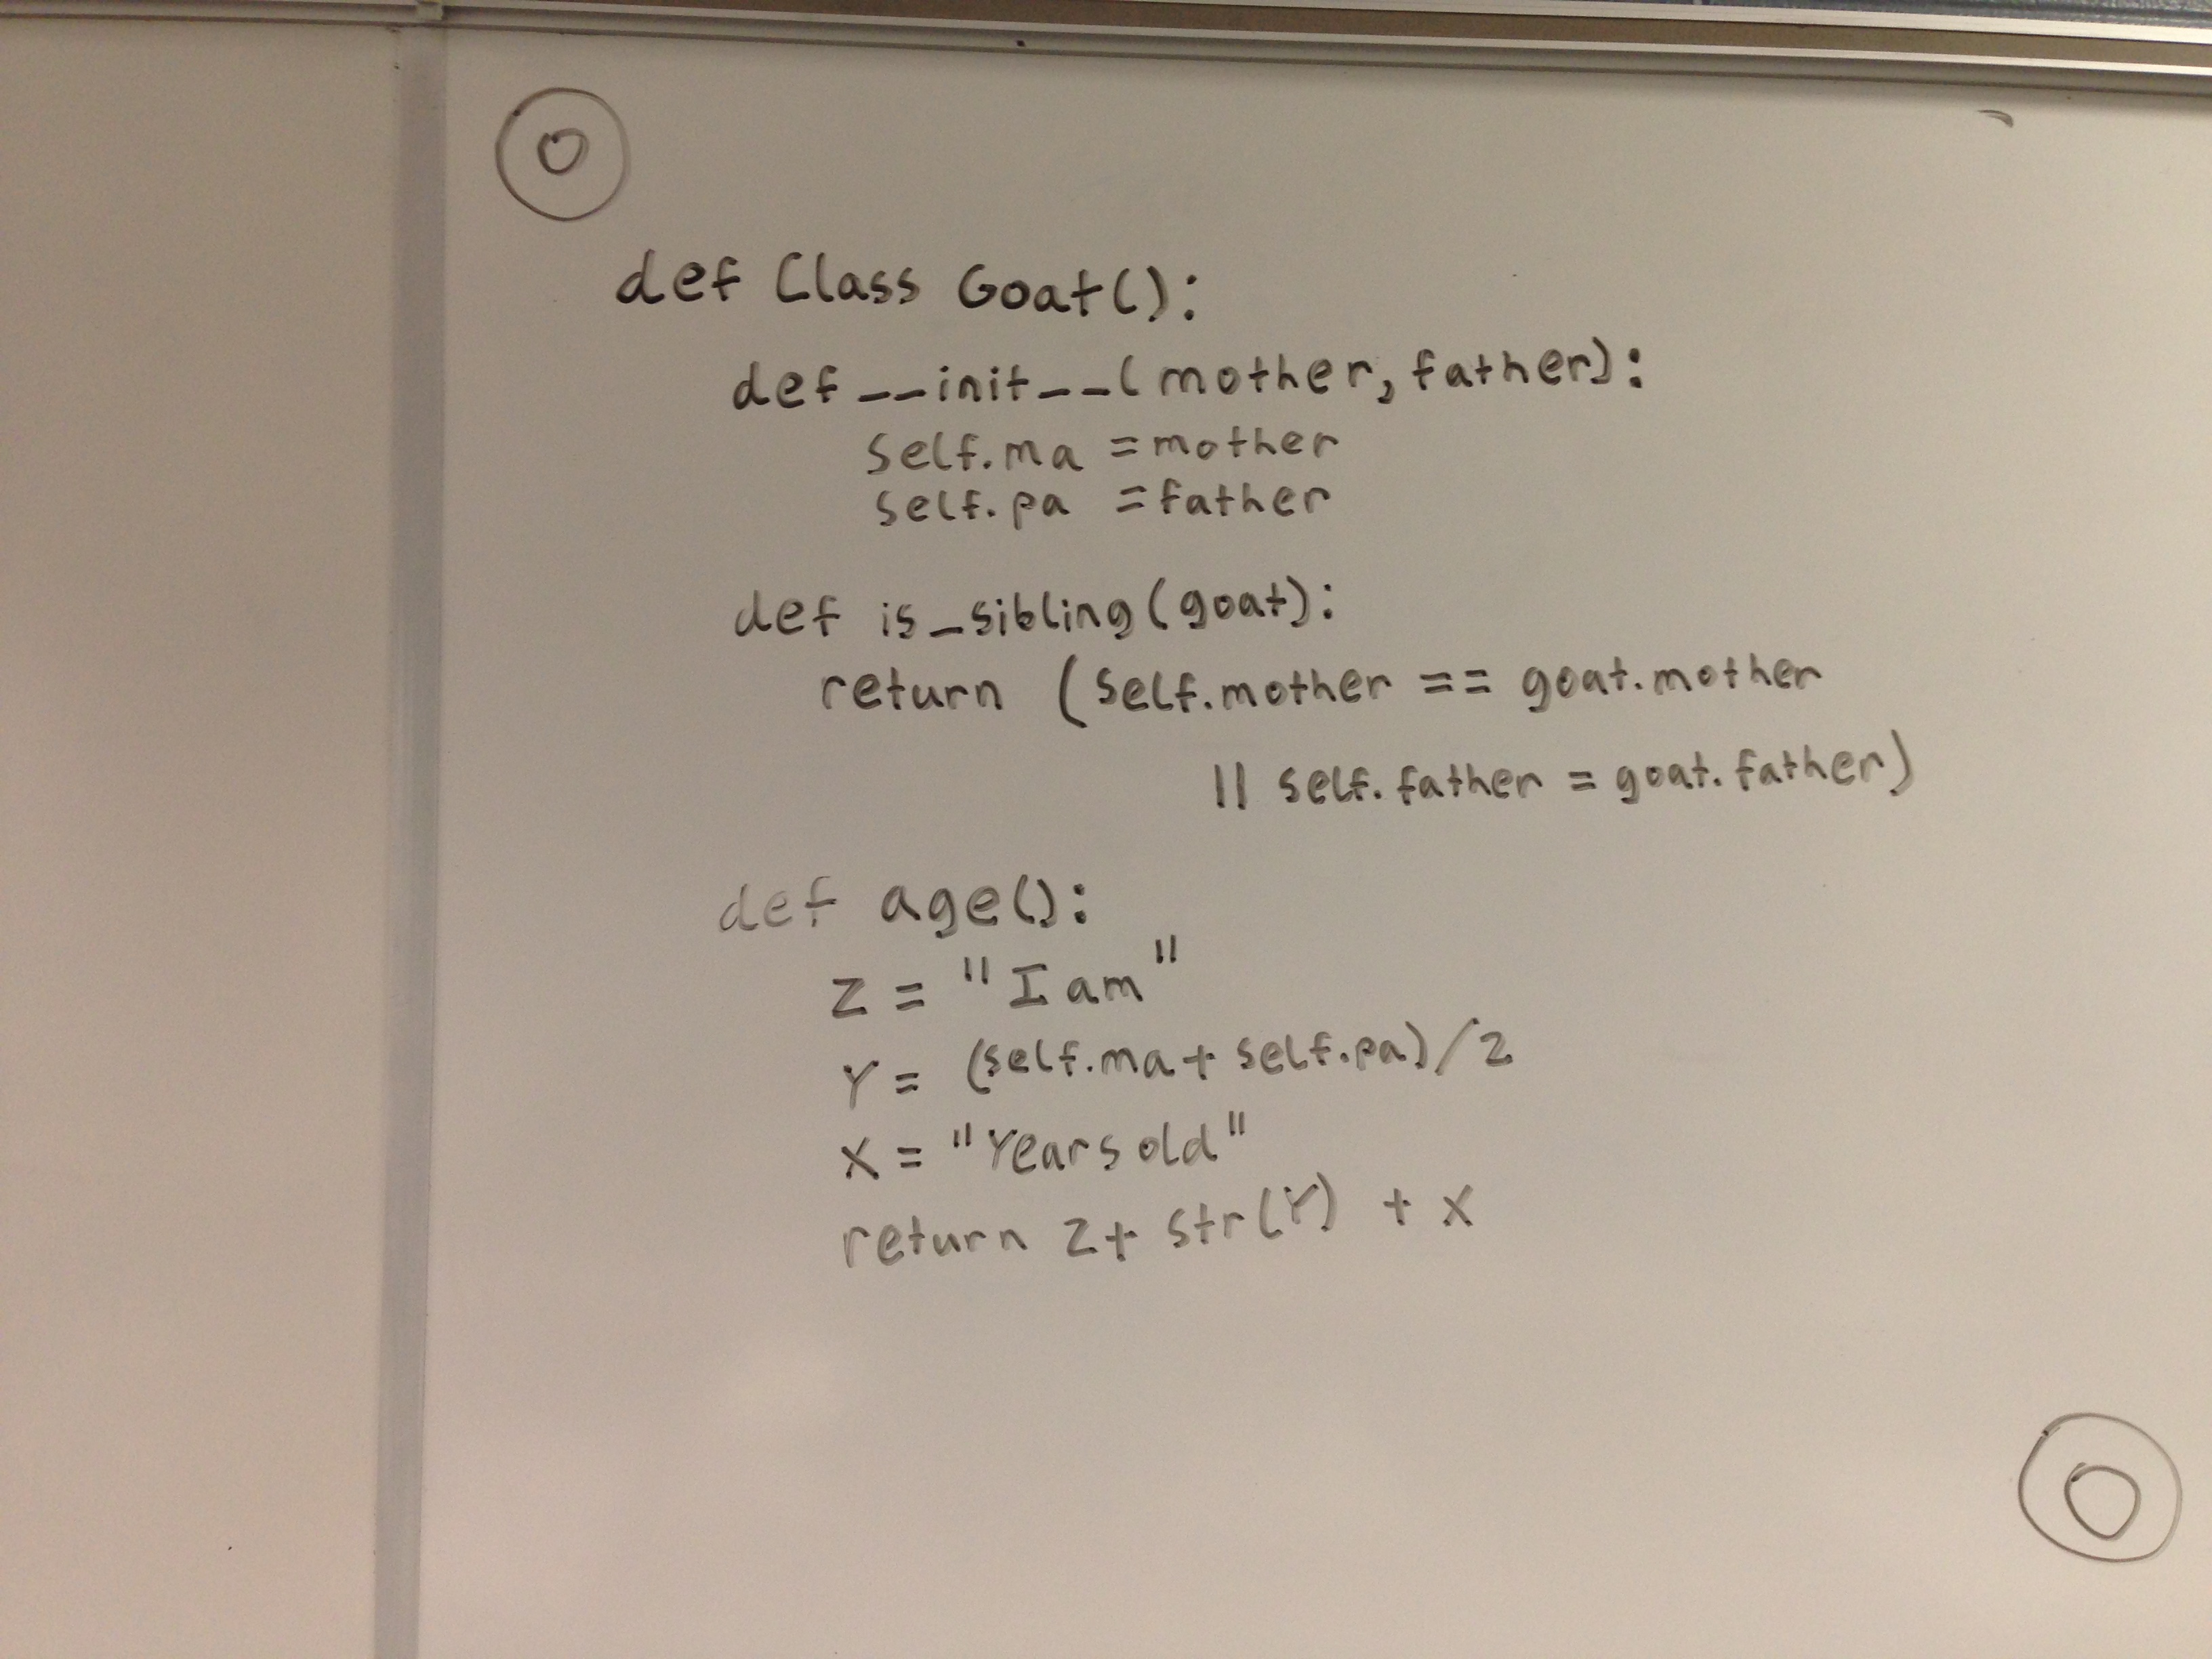 def Class Goat():
def __init__(mother, father):
self.ma = mother
self.pa = father
def is_sibling(goat):
return (self.mother == goat.mother
|| self.father = goat.father)
def age():
Z = "I am"
Y = (self.ma + self.pa)/2
X = "Years old"
return Z + str(Y) + X